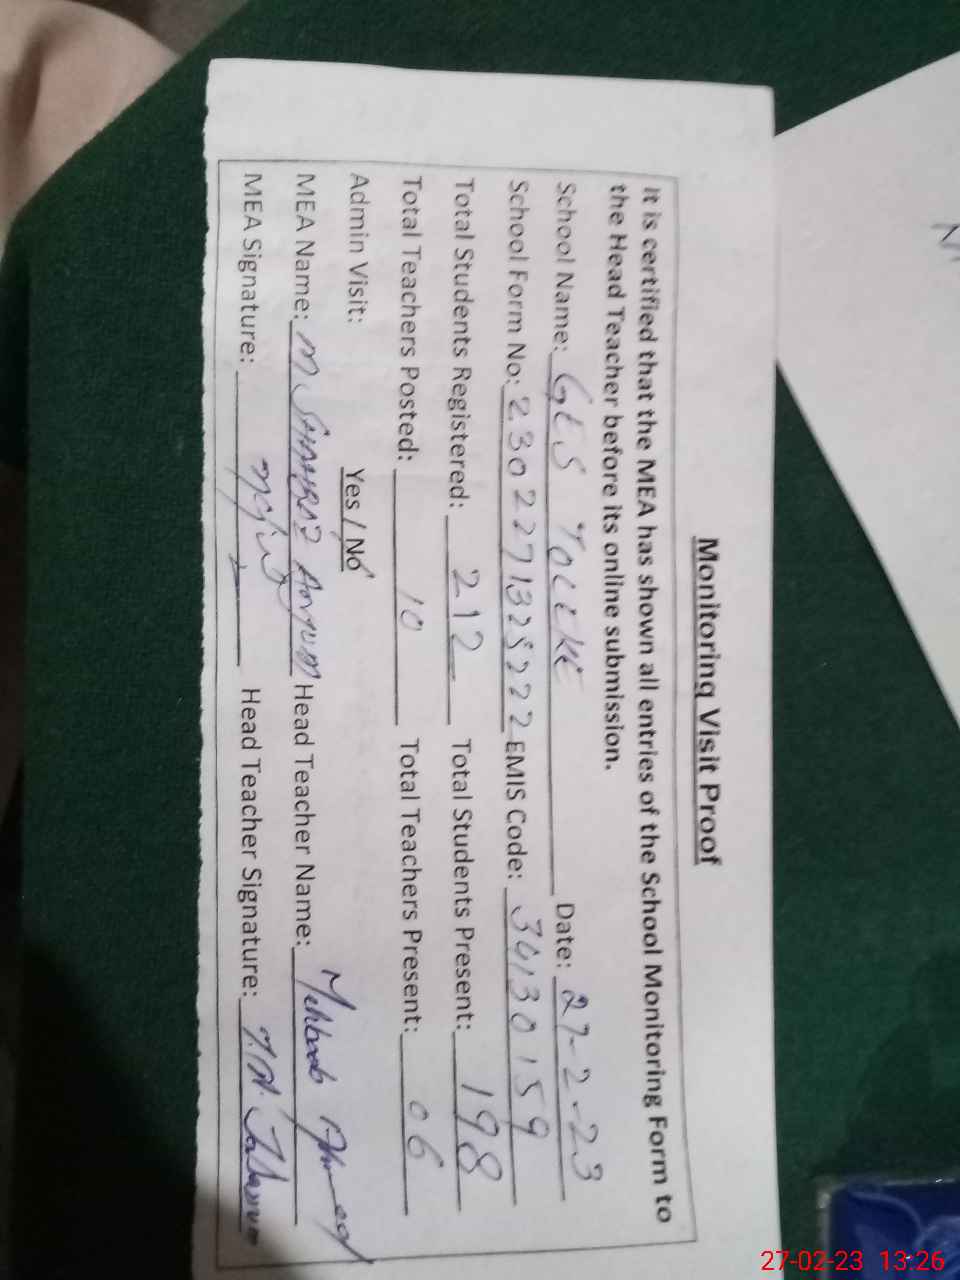 Monitoring Visit Proof
It is certified that the MEA has shown all entries of the School Monitoring Form to
the Head Teacher before its online submission.
School Name: GES TOLEKE Date: 27-2-23
School Form No: 2302271325222 EMIS Code: 34130159
Total Students Registered: 212 Total Students Present: 198
Total Teachers Posted: 10 Total Teachers Present: 06
Admin Visit: Yes / No
MEA Name: M SHAHBAZ Head Teacher Name: Mehboob Ahmed
MEA Signature: Head Teacher Signature:
27-02-23 13:26